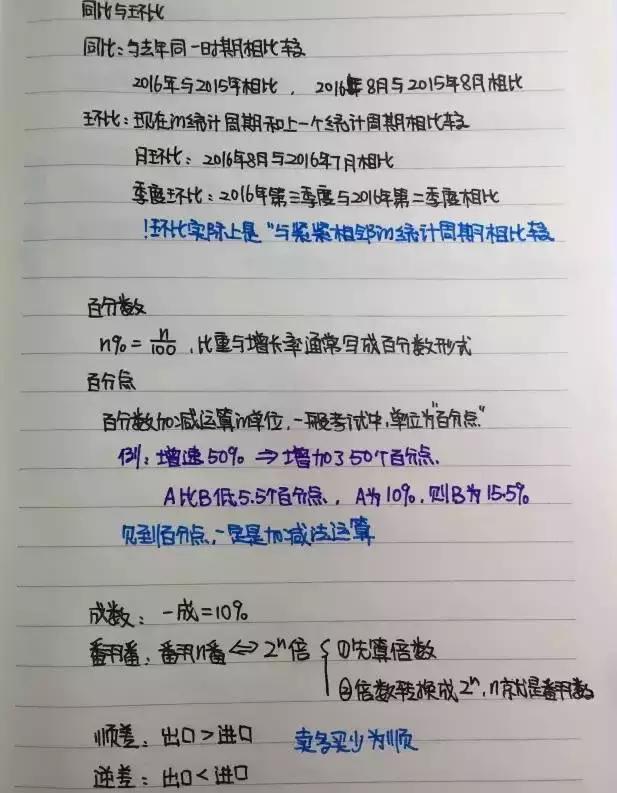 同比与环比
同比：与去年同一时期相比较
2016年与2015年相比，2016年8月与2015年8月相比
环比：现在的统计周期和上一个统计周期相比较
月环比：2016年8月与2016年7月相比
季度环比：2016年第三季度与2016年第二季度相比
！环比实际上是“与紧紧相邻的统计周期相比较
百分数
n%=n/100，比重与增长率通常写成百分数形式
百分点
百分数加减运算的单位，一般考试中，单位为“百分点”
例：增速50% ⇒ 增加了50个百分点．
A比B低5.5个百分点，A为10%，则B为15.5%
见到百分点，一定是加减法运算
成数：一成=10%
翻番：翻n番 ⇔ 2ⁿ倍 { ①先算倍数
②倍数转换成2ⁿ，n就是翻番数
顺差：出口>进口 卖多买少为顺
逆差：出口<进口